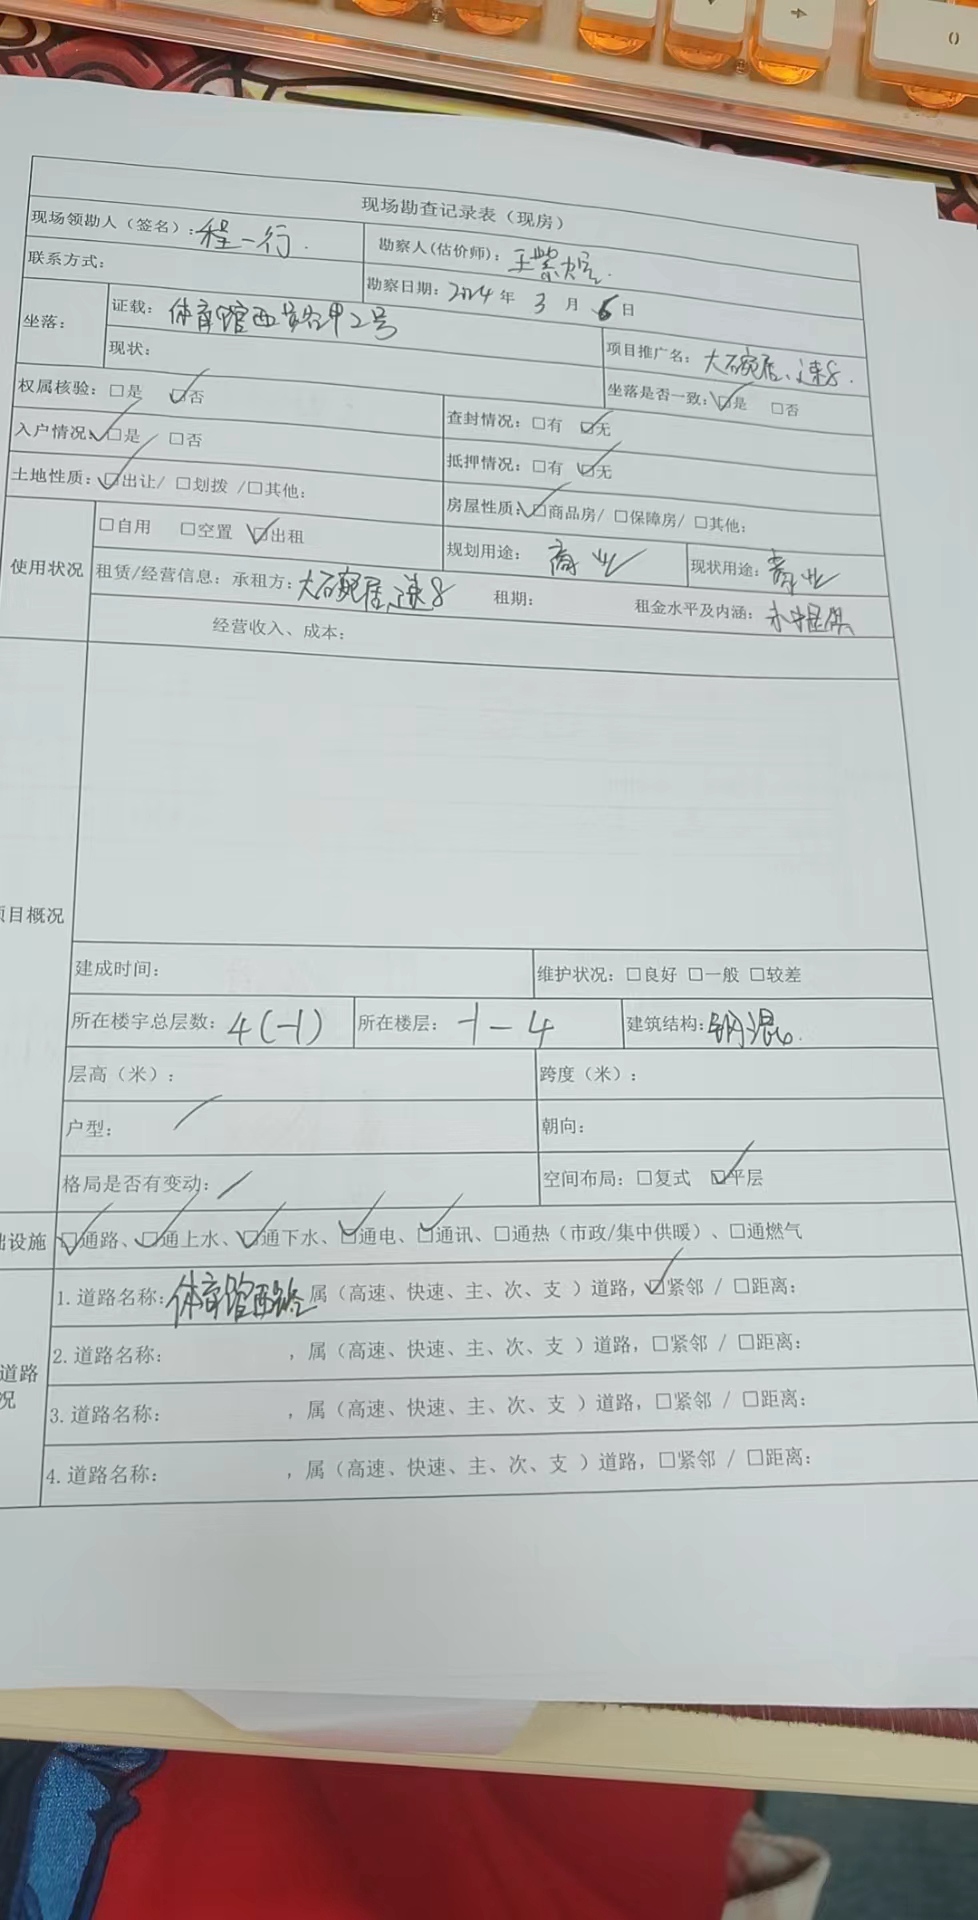 现场勘查记录表（现房）
现场领勘人（签名）：程一行. 勘察人(估价师)：王紫煜.
联系方式： 勘察日期：2024年 3 月 6日
坐落： 证载：体育馆西路甲2号 项目推广名：大碗居、速8.
现状： 坐落是否一致：☑是 □否
权属核验：□是 ☑否 查封情况：□有 ☑无
入户情况：☑是 □否 抵押情况：□有 ☑无
土地性质：☑出让/ □划拨 /□其他： 房屋性质：☑商品房/ □保障房/ □其他：
使用状况 □自用 □空置 ☑出租 规划用途： 商业 现状用途：商业
租赁/经营信息：承租方：大碗居、速8 租期： 租金水平及内涵：未提供
经营收入、成本：
项目概况
建成时间： 维护状况：□良好 □一般 □较差
所在楼宇总层数：4(-1) 所在楼层：-1-4 建筑结构：钢混.
层高（米）： 跨度（米）：
户型： / 朝向：
格局是否有变动：/ 空间布局：□复式 ☑平层
础设施 ☑通路、☑通上水、☑通下水、☑通电、☑通讯、□通热（市政/集中供暖）、□通燃气
道路
况
1.道路名称：体育馆西路 属（高速、快速、主、次、支 ）道路，☑紧邻 / □距离：
2.道路名称： ，属（高速、快速、主、次、支 ）道路，□紧邻 / □距离：
3.道路名称： ，属（高速、快速、主、次、支 ）道路，□紧邻 / □距离：
4.道路名称： ，属（高速、快速、主、次、支 ）道路，□紧邻 / □距离：